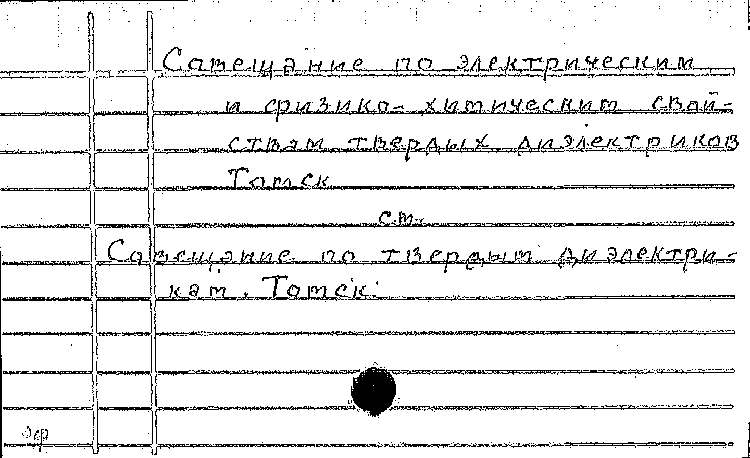 Совещание по электрическим
и физико-химическим свой-
ствам твердых диэлектриков
Томск
см.
Совещание по твердым диэлектри-
кам. Томск.